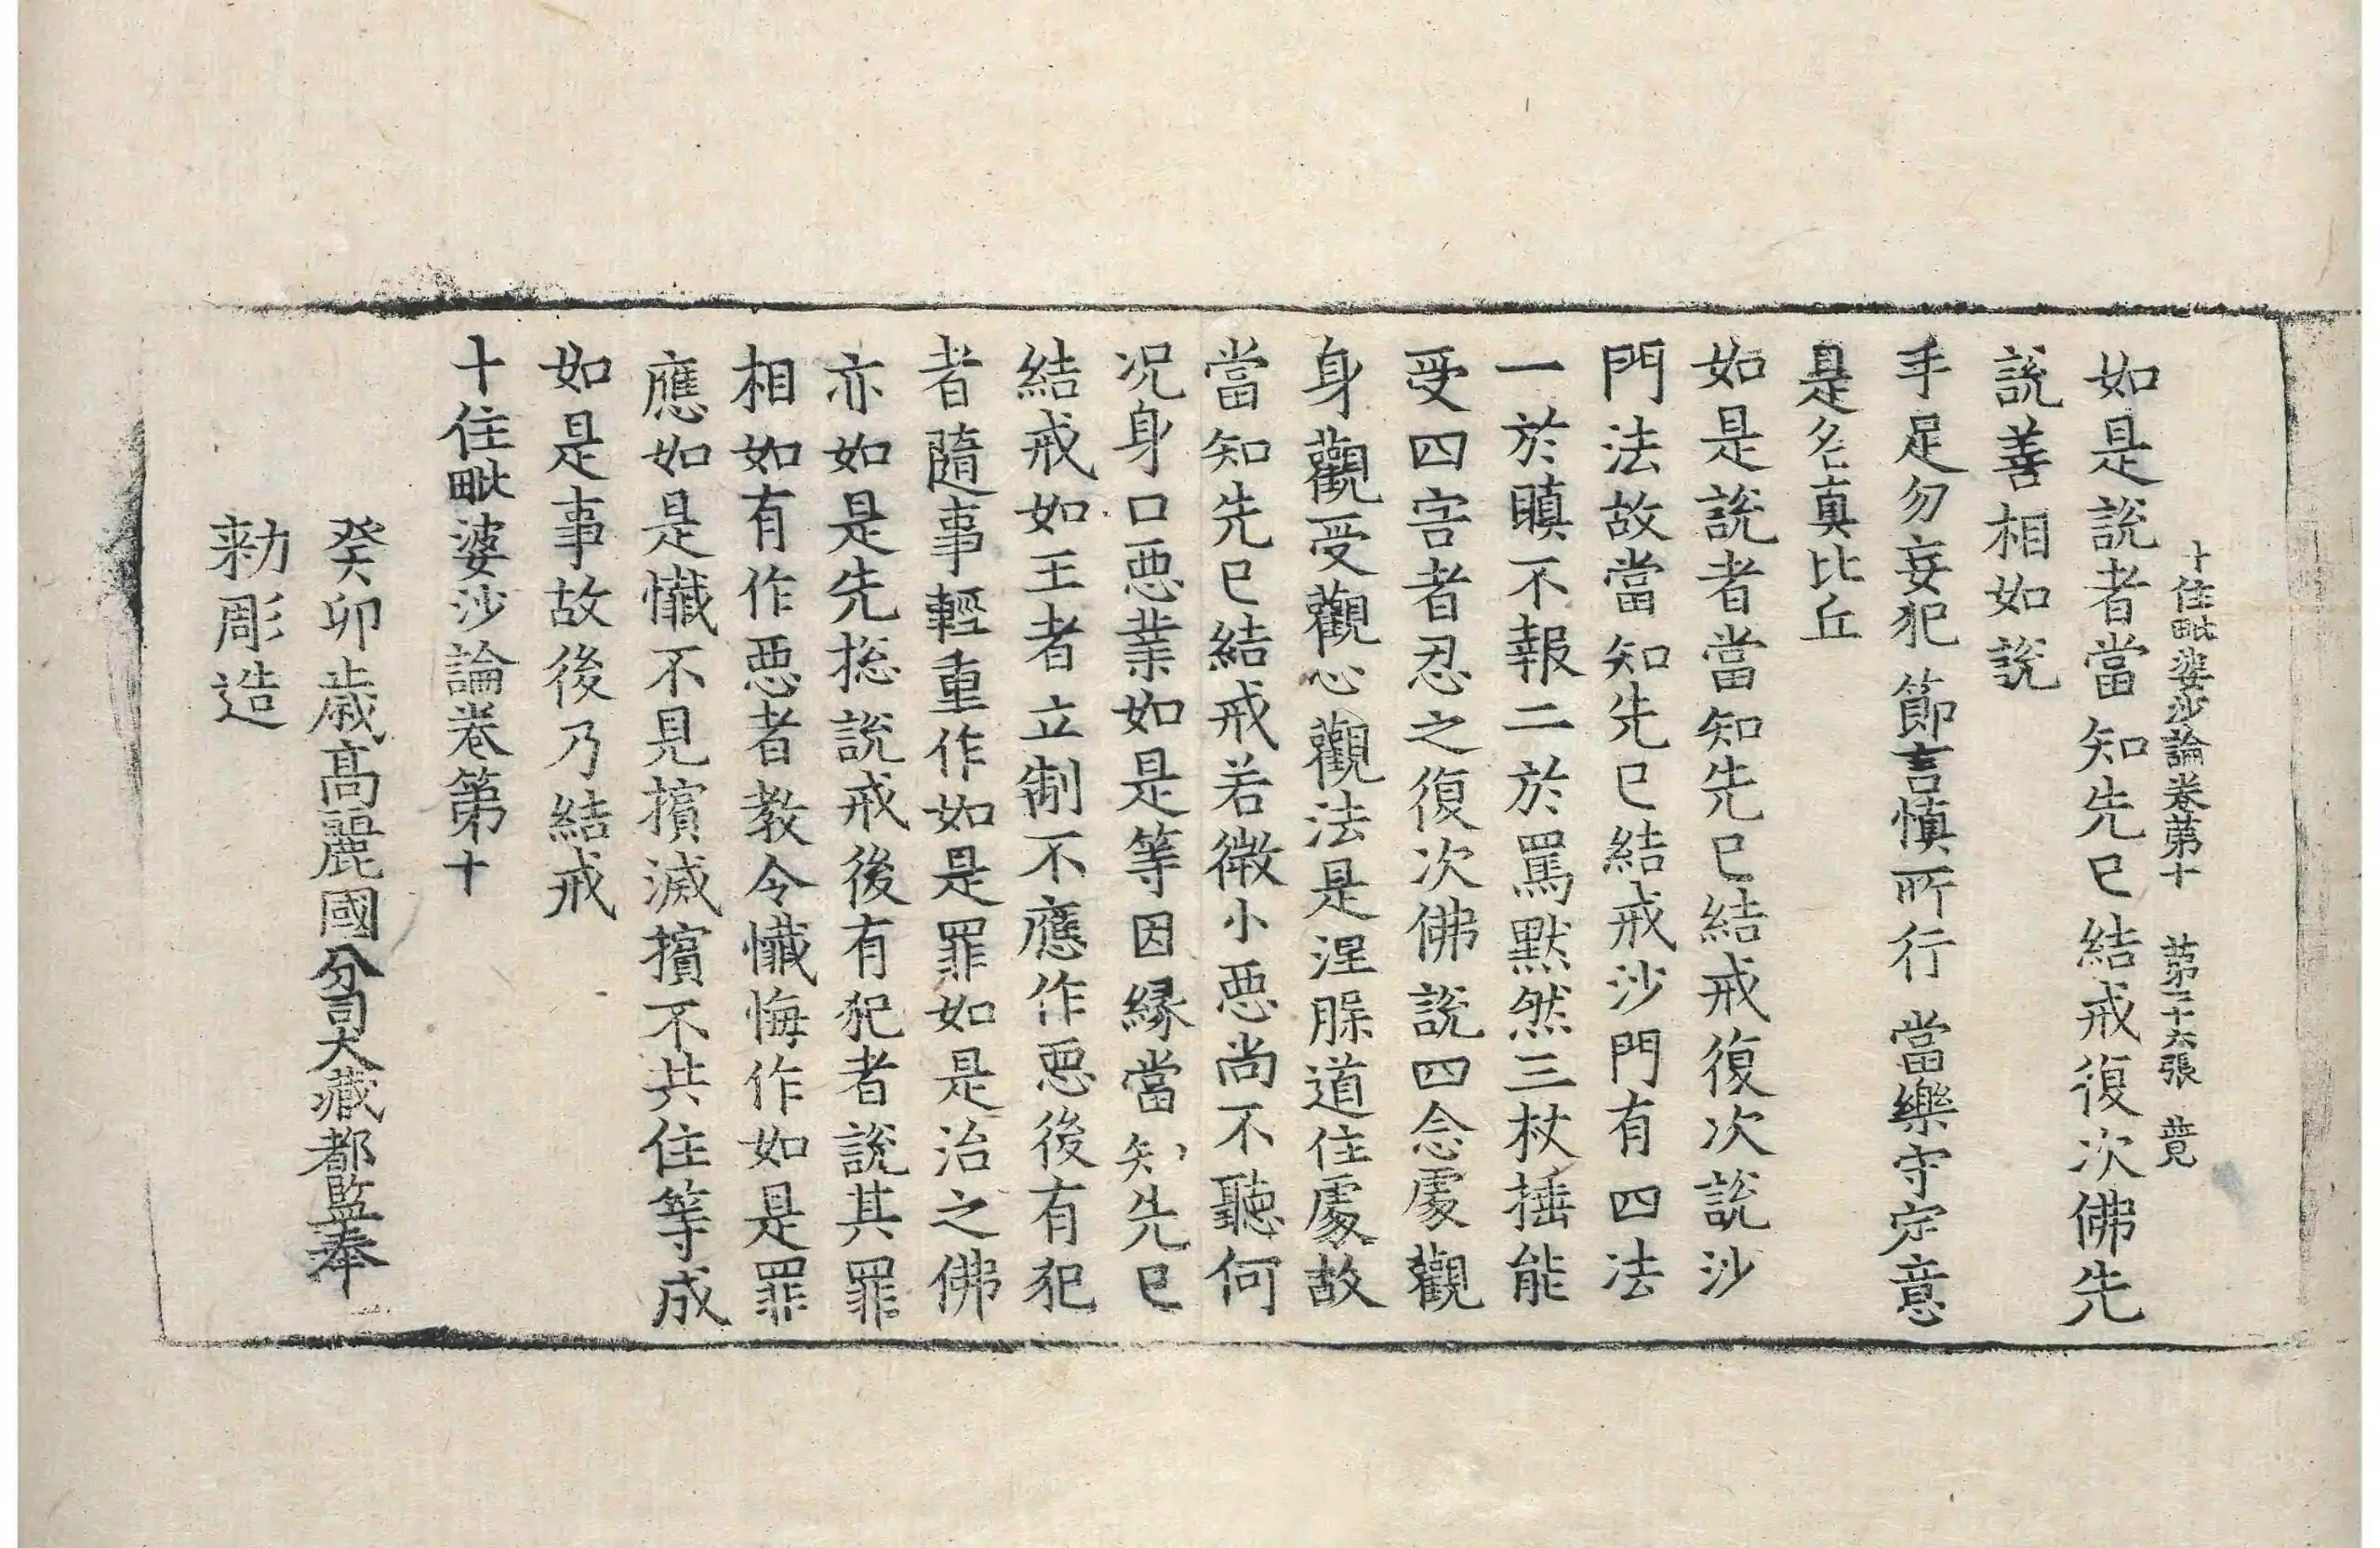 十住毗婆沙論卷第十　第二十六張　競
如是說者當知先已結戒復次佛先
說善相如說
手足勿妄犯　節言慎所行　當樂守定意
是名真比丘
如是說者當知先已結戒復次說沙
門法故當知先已結戒沙門有四法
一於瞋不報二於罵默然三杖捶能
受四害者忍之復次佛說四念處觀
身觀受觀心觀法是涅脲道住處故
當知先已結戒若微小惡尚不聽何
况身口惡業如是等因緣當知先已
結戒如王者立制不應作惡後有犯
者隨事輕重作如是罪如是治之佛
亦如是先捴說戒後有犯者說其罪
相如有作惡者教令懺悔作如是罪
應如是懺不見擯滅擯不共住等成
如是事故後乃結戒
十住毗婆沙論卷第十
癸卯歲高麗國分司大藏都監奉
勑彫造